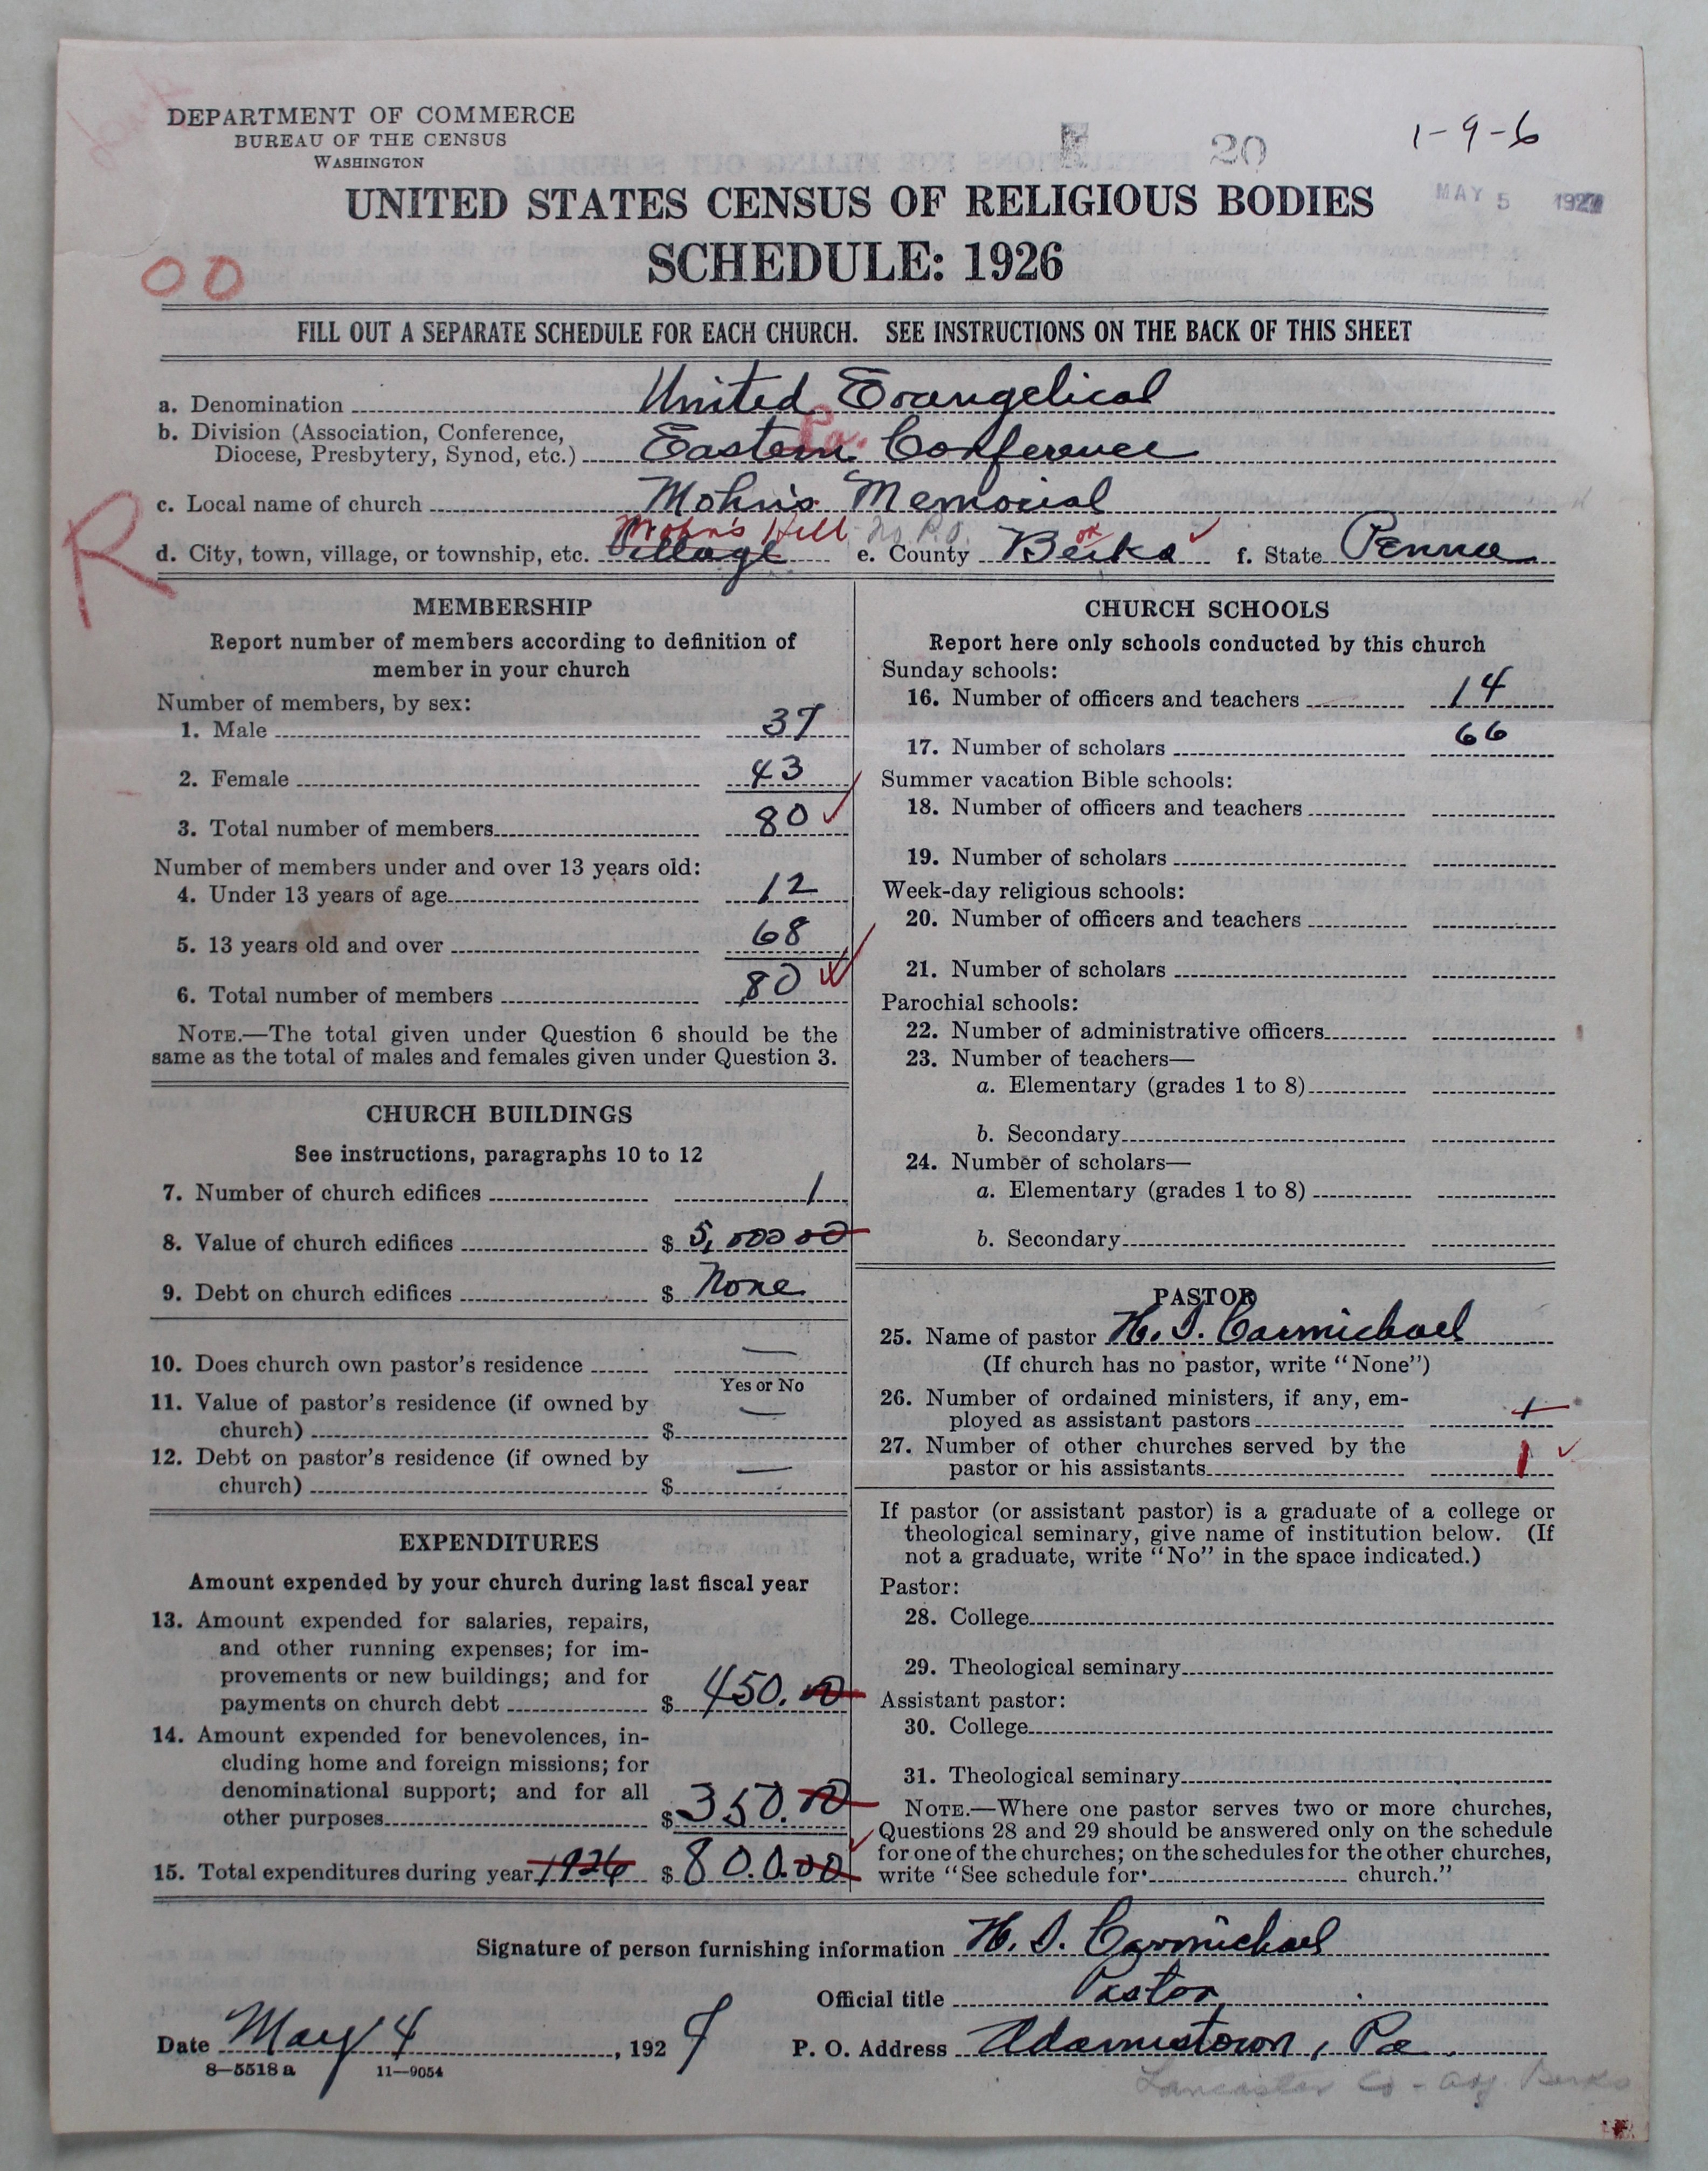 DEPARTMENT OF COMMERCE
BUREAU OF THE CENSUS
WASHINGTON
20
1-9-6
MAY 5 1927
UNITED STATES CENSUS OF RELIGIOUS BODIES
SCHEDULE: 1926
OO
FILL OUT A SEPARATE SCHEDULE FOR EACH CHURCH. SEE INSTRUCTIONS ON THE BACK OF THIS SHEET
a. Denomination United Evangelical
b. Division (Association, Conference, Diocese, Presbytery, Synod, etc.) Eastern Pa. Conference
c. Local name of church Mohn's Memorial
R
Mohn's Hill No P.O. OK
d. City, town, village, or township, etc. Village e. County Berks f. State Penna
MEMBERSHIP
Report number of members according to definition of
member in your church
Number of members, by sex:
1. Male 37
2. Female 43
3. Total number of members 80
Number of members under and over 13 years old:
4. Under 13 years of age 12
5. 13 years old and over 68
6. Total number of members 80
NOTE.—The total given under Question 6 should be the
same as the total of males and females given under Question 3.
CHURCH BUILDINGS
See instructions, paragraphs 10 to 12
7. Number of church edifices 1
8. Value of church edifices $ 5,000 00
9. Debt on church edifices $ None
10. Does church own pastor's residence —
Yes or No
11. Value of pastor's residence (if owned by
church) $ —
12. Debt on pastor's residence (if owned by
church) $ —
EXPENDITURES
Amount expended by your church during last fiscal year
13. Amount expended for salaries, repairs,
and other running expenses; for im-
provements or new buildings; and for
payments on church debt $ 450.00
14. Amount expended for benevolences, in-
cluding home and foreign missions; for
denominational support; and for all
other purposes $ 350.00
15. Total expenditures during year 1926 $ 800.00
CHURCH SCHOOLS
Report here only schools conducted by this church
Sunday schools:
16. Number of officers and teachers 14
17. Number of scholars 66
Summer vacation Bible schools:
18. Number of officers and teachers
19. Number of scholars
Week-day religious schools:
20. Number of officers and teachers
21. Number of scholars
Parochial schools:
22. Number of administrative officers
23. Number of teachers—
a. Elementary (grades 1 to 8)
b. Secondary
24. Number of scholars—
a. Elementary (grades 1 to 8)
b. Secondary
PASTOR
25. Name of pastor H. I. Carmichael
(If church has no pastor, write "None")
26. Number of ordained ministers, if any, em-
ployed as assistant pastors 1
27. Number of other churches served by the
pastor or his assistants 1
If pastor (or assistant pastor) is a graduate of a college or
theological seminary, give name of institution below. (If
not a graduate, write "No" in the space indicated.)
Pastor:
28. College
29. Theological seminary
Assistant pastor:
30. College
31. Theological seminary
NOTE.—Where one pastor serves two or more churches,
Questions 28 and 29 should be answered only on the schedule
for one of the churches; on the schedules for the other churches,
write "See schedule for church."
Signature of person furnishing information H. I. Carmichael
Official title Pastor
Date May 4, 1927 P. O. Address Adamstown, Pa.
8—5518 a 11—9054
Lancaster Co - adj. Berks